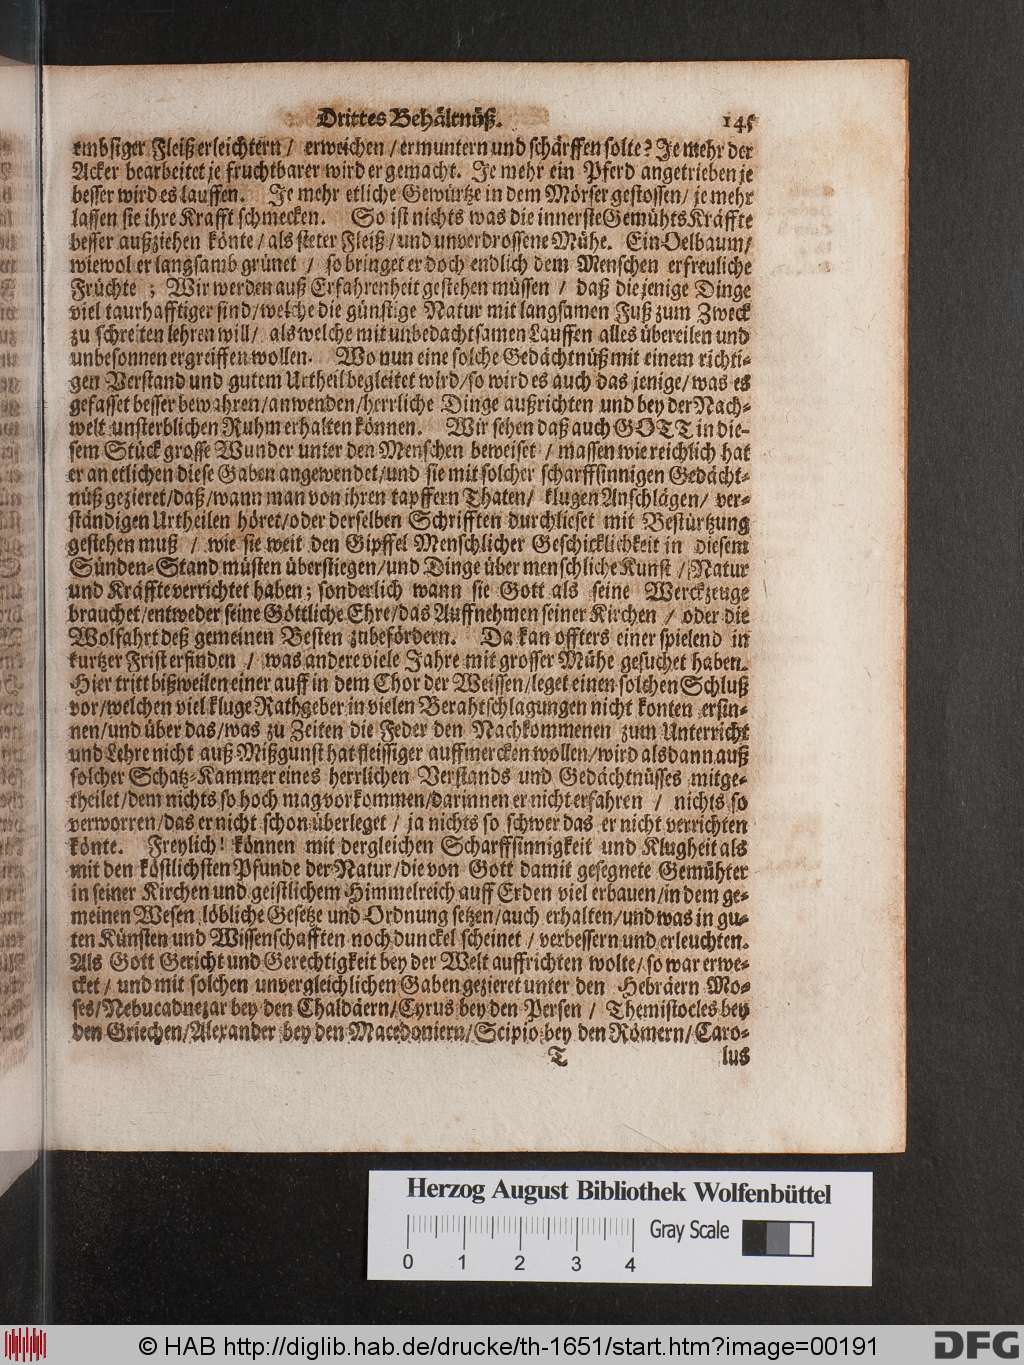 Drittes Behältnüß. 145
embsiger Fleiß erleichtern / erweichen / ermuntern und schärffen solte? Je mehr der
Acker bearbeitet je fruchtbarer wird er gemacht. Je mehr ein Pferd angetrieben je
besser wird es lauffen. Je mehr etliche Gewürtze in dem Mörser gestossen / je mehr
lassen sie ihre Krafft schmecken. So ist nichts was die innerste Gemühts Kräffte
besser außziehen könte / als steter Fleiß / und unverdrossene Mühe. Ein Oelbaum /
wiewol er langsamb grünet / so bringet er doch endlich dem Menschen erfreuliche
Früchte ; Wir werden auß Erfahrenheit gestehen müssen / daß die jenige Dinge
viel taurhafftiger sind / welche die günstige Natur mit langsamen Fuß zum Zweck
zu schreiten lehren will / als welche mit unbedachtsamen Lauffen alles übereilen und
unbesonnen ergreiffen wollen. Wo nun eine solche Gedächtnüß mit einem richti-
gen Verstand und gutem Urtheil begleitet wird / so wird es auch das jenige / was es
gefasset besser bewahren / anwenden / herrliche Dinge außrichten und bey der Nach-
welt unsterblichen Ruhm erhalten können. Wir sehen daß auch GOTT in die-
sem Stück grosse Wunder unter den Menschen beweiset / massen wie reichlich hat
er an etlichen diese Gaben angewendet / und sie mit solcher scharffsinnigen Gedächt-
nüß gezieret / daß / wann man von ihren tapffern Thaten / klugen Anschlägen / ver-
ständigen Urtheilen höret / oder derselben Schrifften durchlieset mit Bestürtzung
gestehen muß / wie sie weit den Gipffel Menschlicher Geschicklichkeit in diesem
Sünden-Stand müsten überstiegen / und Dinge über menschliche Kunst / Natur
und Kräffte verrichtet haben; sonderlich wann sie Gott als seine Werckzeuge
brauchet / entweder seine Göttliche Ehre / das Auffnehmen seiner Kirchen / oder die
Wolfahrt deß gemeinen Besten zubefördern. Da kan offters einer spielend in
kurtzer Frist erfinden / was andere viele Jahre mit grosser Mühe gesuchet haben.
Hier tritt bißweilen einer auff in dem Chor der Weissen / leget einen solchen Schluß
vor / welchen viel kluge Rathgeber in vielen Berahtschlagungen nicht konten ersin-
nen / und über das / was zu Zeiten die Feder den Nachkommenen zum Unterricht
und Lehre nicht auß Mißgunst hat fleissiger auffmercken wollen / wird alsdann auß
solcher Schatz-Kammer eines herrlichen Verstands und Gedächtnüsses mitge-
theilet / dem nichts so hoch mag vorkommen / darinnen er nicht erfahren / nichts so
verworren / das er nicht schon überleget / ja nichts so schwer das er nicht verrichten
könte. Freylich! können mit dergleichen Scharffsinnigkeit und Klugheit als
mit den köstlichsten Pfunde der Natur / die von Gott damit gesegnete Gemühter
in seiner Kirchen und geistlichem Himmelreich auff Erden viel erbauen / in dem ge-
meinen Wesen löbliche Gesetze und Ordnung setzen / auch erhalten / und was in gu-
ten Künsten und Wissenschafften noch dunckel scheinet / verbessern und erleuchten.
Als Gott Gericht und Gerechtigkeit bey der Welt auffrichten wolte / so war erwe-
cket / und mit solchen unvergleichlichen Gaben gezieret unter den Hebräern Mo-
ses / Nebucadnezar bey den Chaldäern / Cyrus bey den Persen / Themistocles bey
den Griechen / Alexander bey den Macedoniern / Scipio bey den Römern / Caro-
T lus
Herzog August Bibliothek Wolfenbüttel
Gray Scale
0 1 2 3 4
© HAB http://diglib.hab.de/drucke/th-1651/start.htm?image=00191
DFG